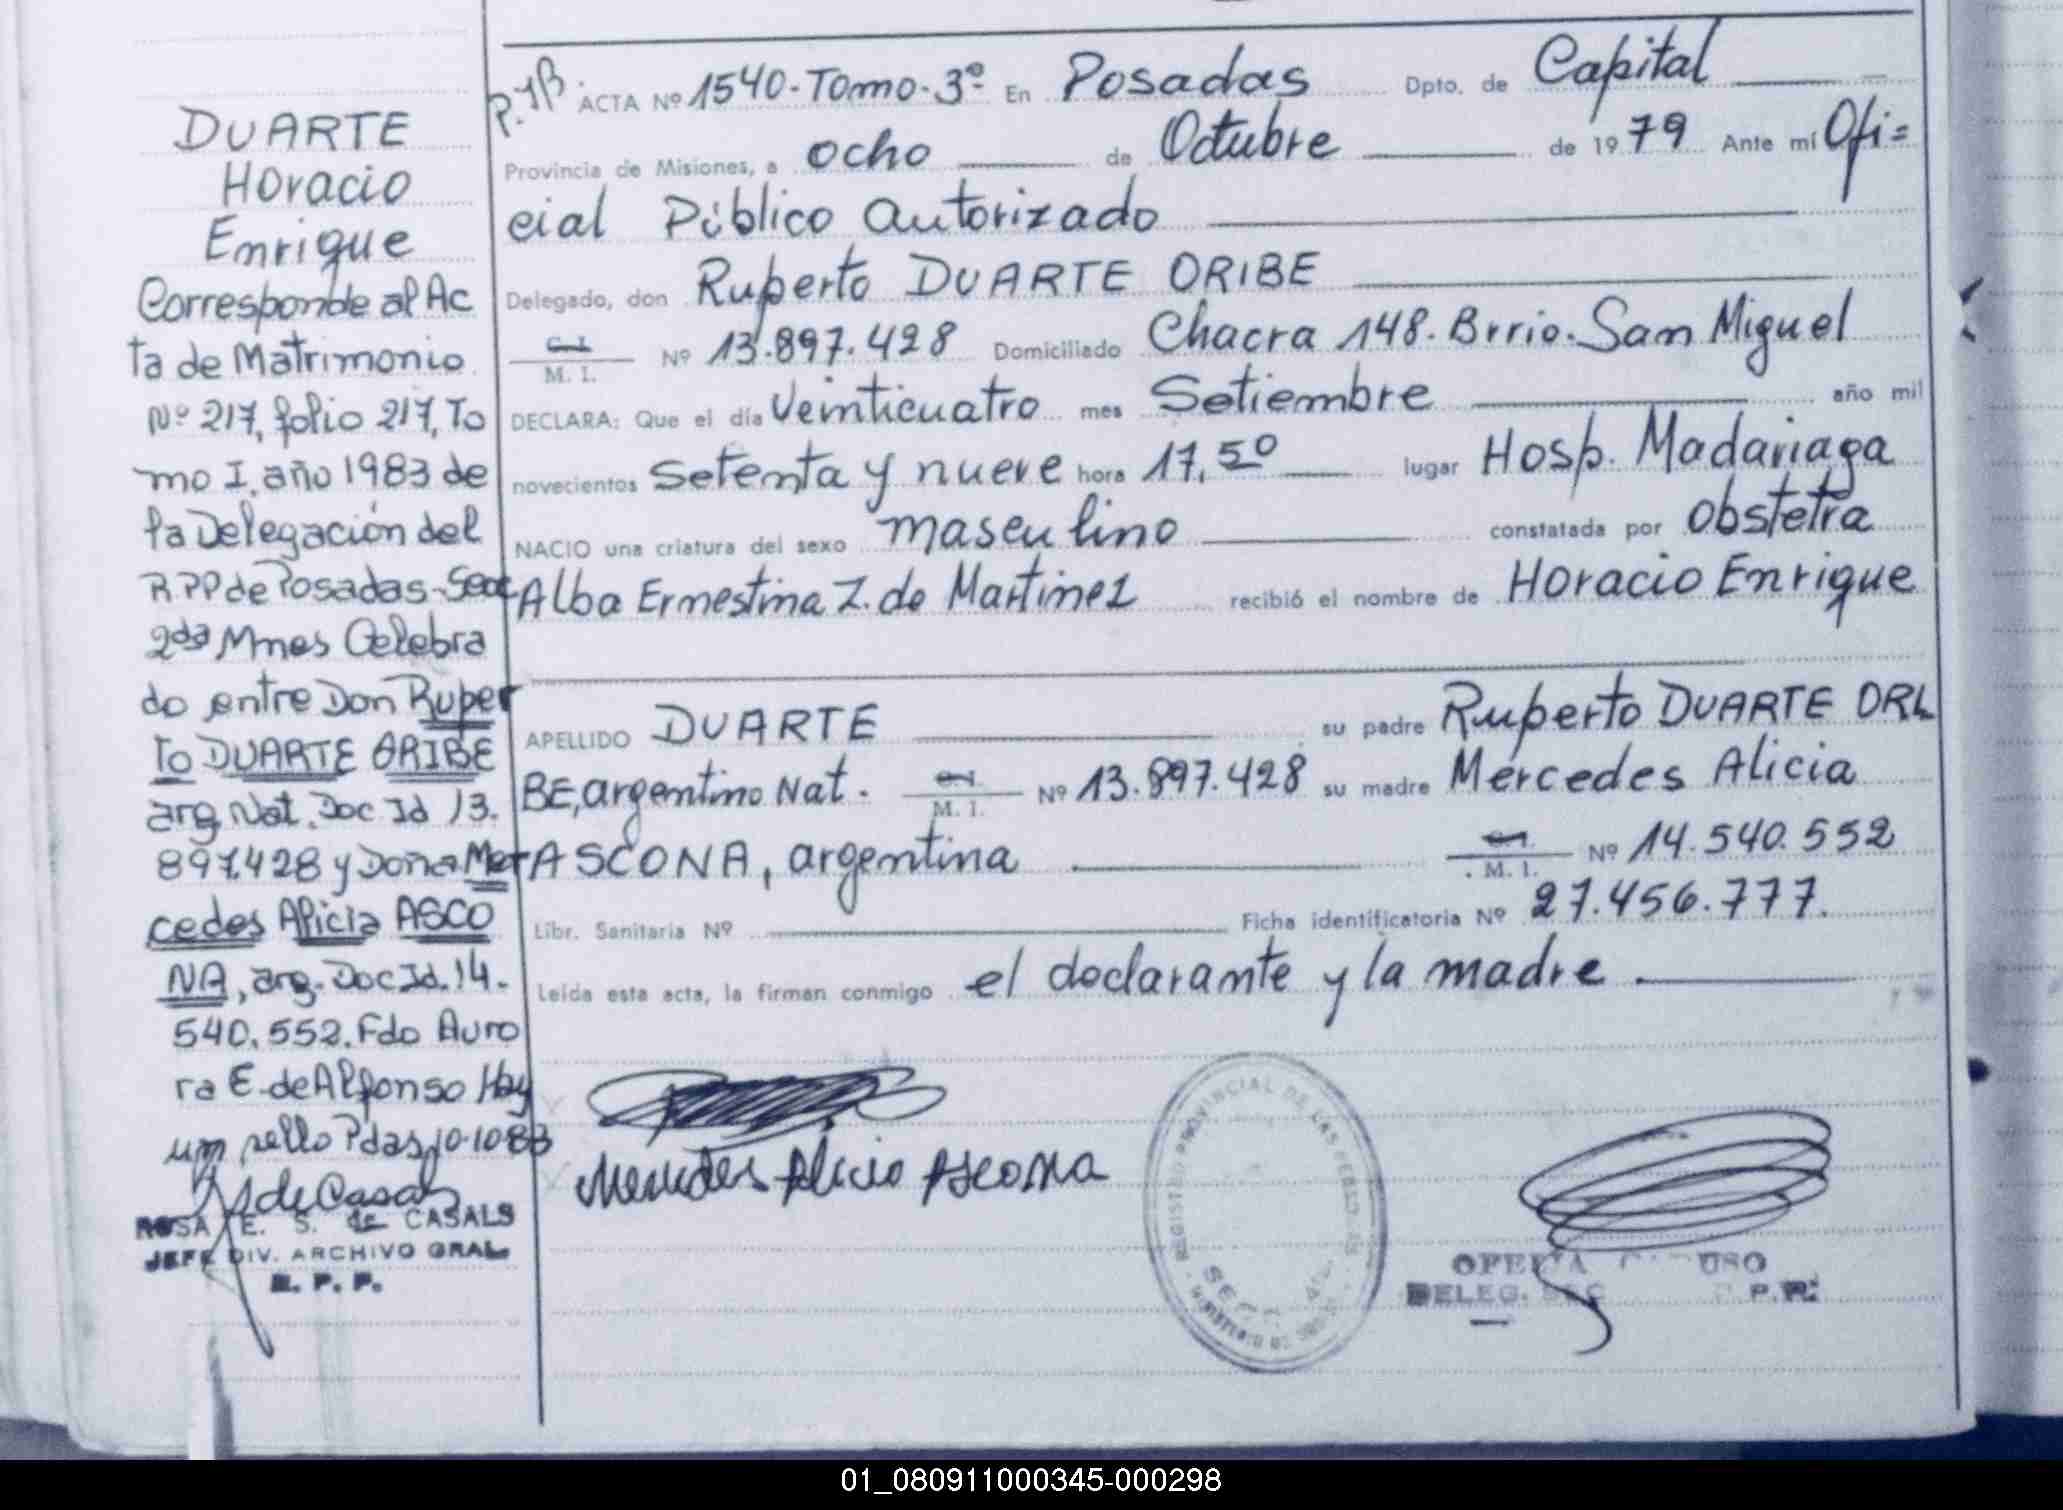 DUARTE
Horacio
Enrique
Corresponde al Ac
ta de Matrimonio
Nº 217, folio 217, To
mo I, año 1983 de
la Delegación del
RPP de Posadas-Secc
2da Mnes Celebra
do entre Don Ruper
to DUARTE ORIBE
arg. Nat. Doc Id 13.
897.428 y Doña Mer
cedes Alicia ASCO
NA, arg. Doc Id. 14.
540.552. Fdo Auro
ra E. de Alfonso Hay
un sello Pdas, 10-10-83
ROSA E. S. de CASALS
JEFE DIV. ARCHIVO GRAL.
R. P. P.
ACTA Nº 1540. Tomo. 3º En Posadas Dpto. de Capital
Provincia de Misiones, a ocho de Octubre de 1979 Ante mí Ofi=
cial Público Autorizado
Delegado, don Ruperto DUARTE ORIBE
C. I.
M. I. Nº 13.897.428 Domiciliado Chacra 148. Brrio. San Miguel
DECLARA: Que el día Veinticuatro mes Setiembre año mil
novecientos Setenta y nueve hora 17,50 lugar Hosp. Madariaga
NACIO una criatura del sexo masculino constatada por Obstetra
Alba Ernestina Z. de Martinez recibió el nombre de Horacio Enrique
APELLIDO DUARTE su padre Ruperto DUARTE ORI
BE, argentino Nat. M. I. Nº 13.897.428 su madre Mercedes Alicia
ASCONA, argentina M. I. Nº 14.540.552
Libr. Sanitaria Nº Ficha identificatoria Nº 27.456.777.
Leída esta acta, la firman conmigo el declarante y la madre.
Mercedes Alicia Ascona
REGISTRO PROVINCIAL DE LAS PERSONAS
SECC.
DELEG. P.P.
01_080911000345-000298